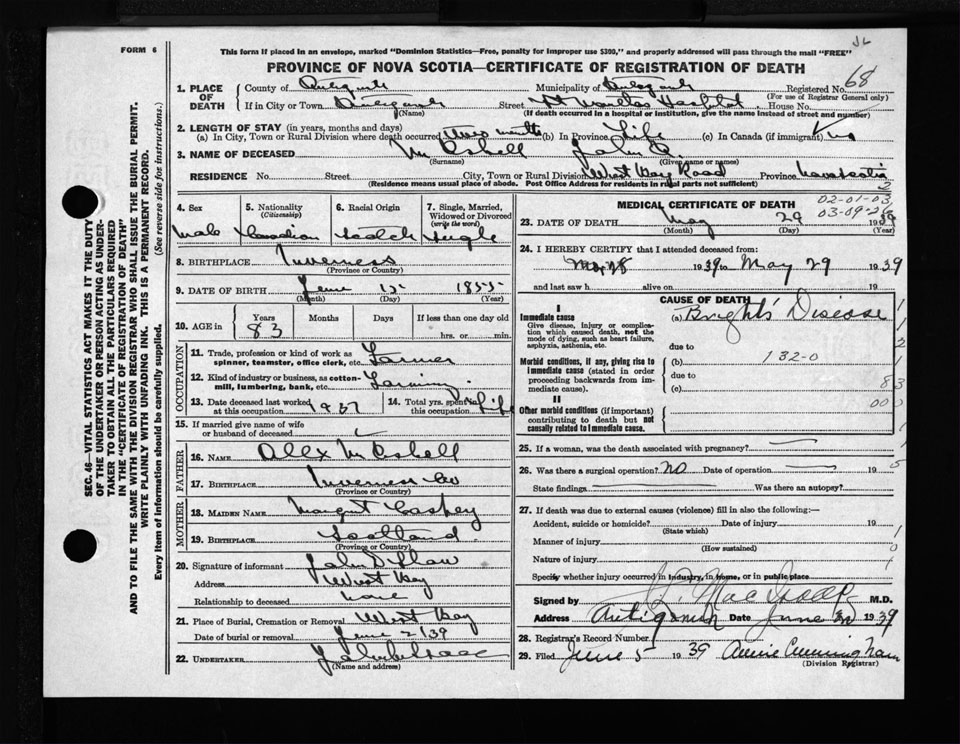 FORM 6
This form if placed in an envelope, marked "Dominion Statistics—Free, penalty for improper use $300," and properly addressed will pass through the mail "FREE"
PROVINCE OF NOVA SCOTIA—CERTIFICATE OF REGISTRATION OF DEATH
68
1. PLACE OF DEATH
County of
Municipality of
Registered No.
(For use of Registrar General only)
If in City or Town
Street
House No.
(Name)
(If death occurred in a hospital or institution, give the name instead of street and number)
2. LENGTH OF STAY (in years, months and days)
(a) In City, Town or Rural Division where death occurred
(b) In Province Life (c) In Canada (if immigrant)
3. NAME OF DECEASED
John
(Surname) (Given name or names)
RESIDENCE No. Street City, Town or Rural Division West Bay Road Province Nova Scotia
(Residence means usual place of abode. Post Office Address for residents in rural parts not sufficient)
SEC. 46—VITAL STATISTICS ACT MAKES IT THE DUTY
OF THE UNDERTAKER OR PERSON ACTING AS UNDER-
TAKER TO OBTAIN ALL THE PARTICULARS REQUIRED
IN THE "CERTIFICATE OF REGISTRATION OF DEATH"
AND TO FILE THE SAME WITH THE DIVISION REGISTRAR WHO SHALL ISSUE THE BURIAL PERMIT.
WRITE PLAINLY WITH UNFADING INK. THIS IS A PERMANENT RECORD.
Every item of information should be carefully supplied. (See reverse side for instructions.)
4. Sex 5. Nationality (Citizenship) 6. Racial Origin 7. Single, Married, Widowed or Divorced (write the word)
Male Canadian Scotch Single
8. BIRTHPLACE Inverness
(Province or County)
9. DATE OF BIRTH June 15 1855
(Month) (Day) (Year)
10. AGE in Years Months Days If less than one day
83 hrs. or min.
OCCUPATION
11. Trade, profession or kind of work as spinner, teamster, office clerk, etc. Farmer
12. Kind of industry or business, as cotton-mill, lumbering, bank, etc. Farming
13. Date deceased last worked at this occupation 1937
14. Total yrs. spent in this occupation Life
15. If married give name of wife or husband of deceased
FATHER
16. NAME Allx
17. BIRTHPLACE Inverness Co
(Province or Country)
MOTHER
18. MAIDEN NAME
19. BIRTHPLACE Scotland
(Province or Country)
20. Signature of informant John D Shaw
Address West Bay
Relationship to deceased none
21. Place of Burial, Cremation or Removal West Bay
Date of burial or removal June 2/39
22. UNDERTAKER
(Name and address)
MEDICAL CERTIFICATE OF DEATH
02-01-03
23. DATE OF DEATH May 29 19
(Month) (Day) (Year)
24. I HEREBY CERTIFY that I attended deceased from:
1939 to May 29 1939
and last saw h alive on 19
CAUSE OF DEATH
I
Immediate cause
Give disease, injury or complication which caused death, not the mode of dying, such as heart failure, asphyxia, asthenia, etc.
(a) Bright's Disease
due to
Morbid conditions, if any, giving rise to immediate cause (stated in order proceeding backwards from immediate cause).
(b) 132-0
due to
(c) 83
II
Other morbid conditions (if important) contributing to death but not causally related to immediate cause.
25. If a woman, was the death associated with pregnancy?
26. Was there a surgical operation? NO Date of operation 19
State findings Was there an autopsy?
27. If death was due to external causes (violence) fill in also the following:—
Accident, suicide or homicide? Date of injury 19
(State which)
Manner of injury
(How sustained)
Nature of injury
Specify whether injury occurred in industry, in home, or in public place
Signed by M.D.
Address Antigonish Date June 1939
28. Registrar's Record Number
29. Filed June 5 1939 Annie Cunningham
(Division Registrar)